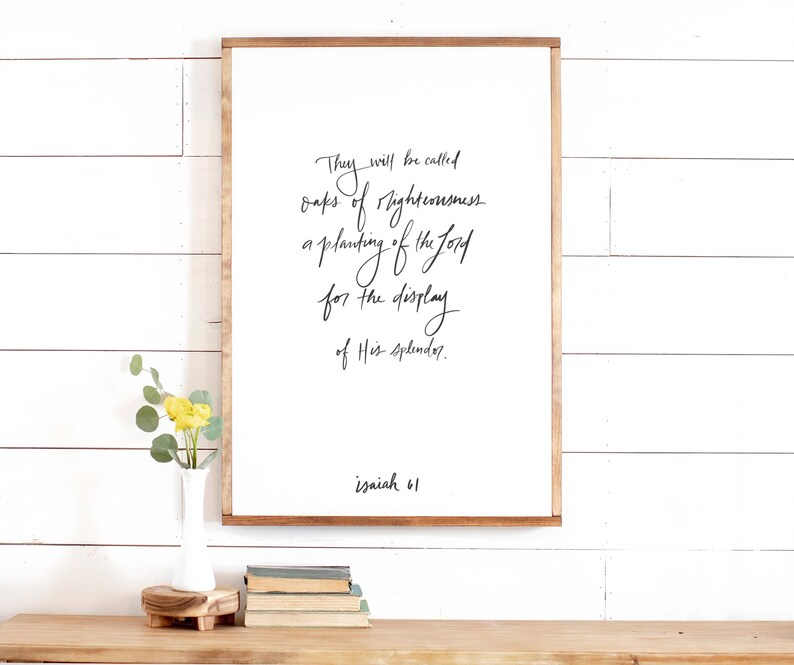 They will be called
oaks of righteousness
a planting of the Lord
for the display
of His splendor.
isaiah 61